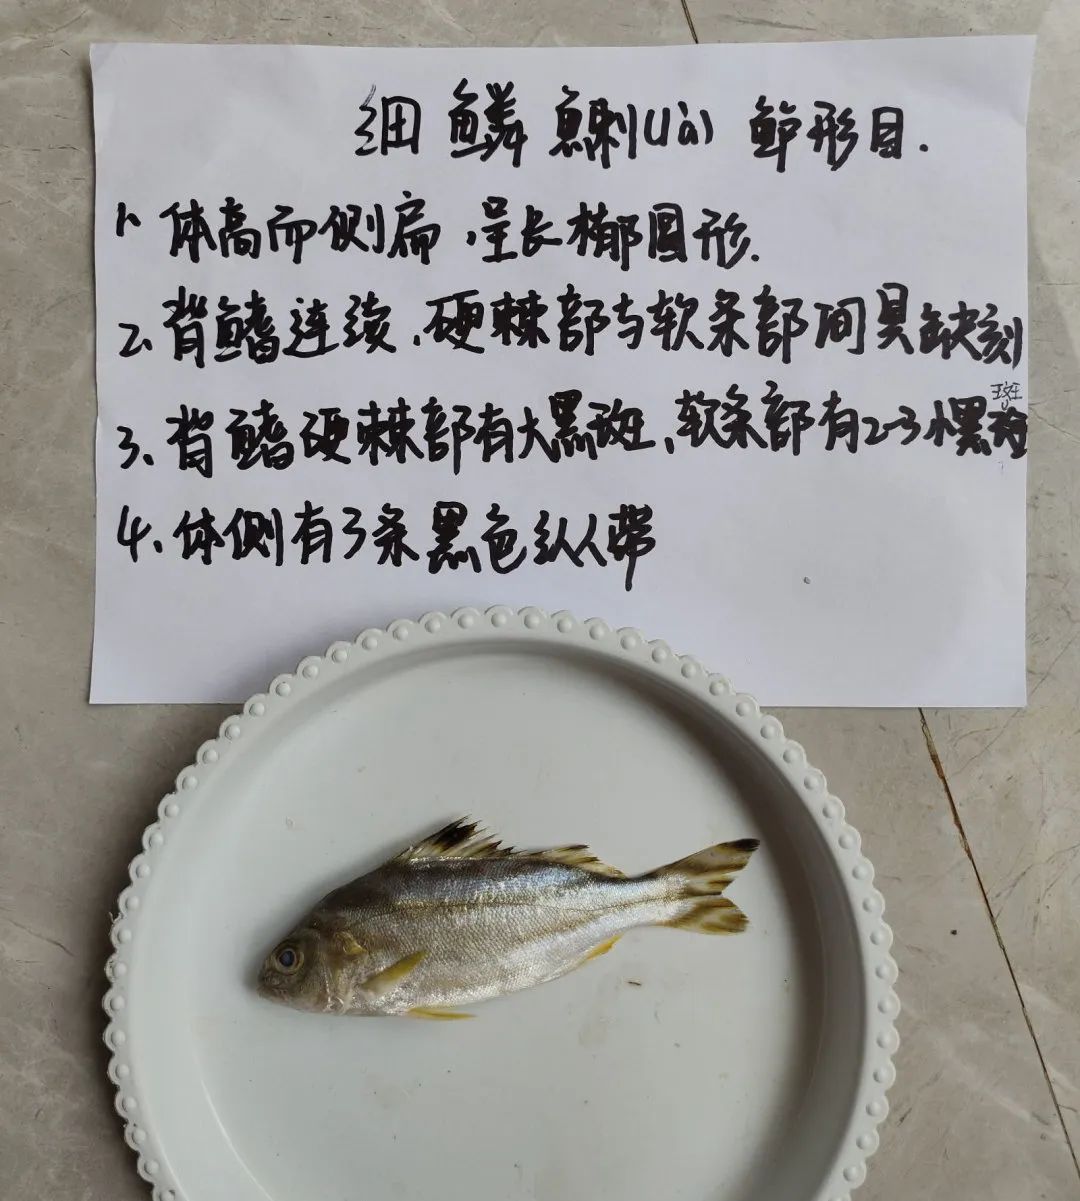 细鳞鯻(là) 鲈形目.
1、体高而侧扁,呈长椭圆形.
2、背鳍连续,硬棘部与软条部间具缺刻
3、背鳍硬棘部有大黑斑,软条部有2-3小黑斑
斑
4、体侧有3条黑色纵带